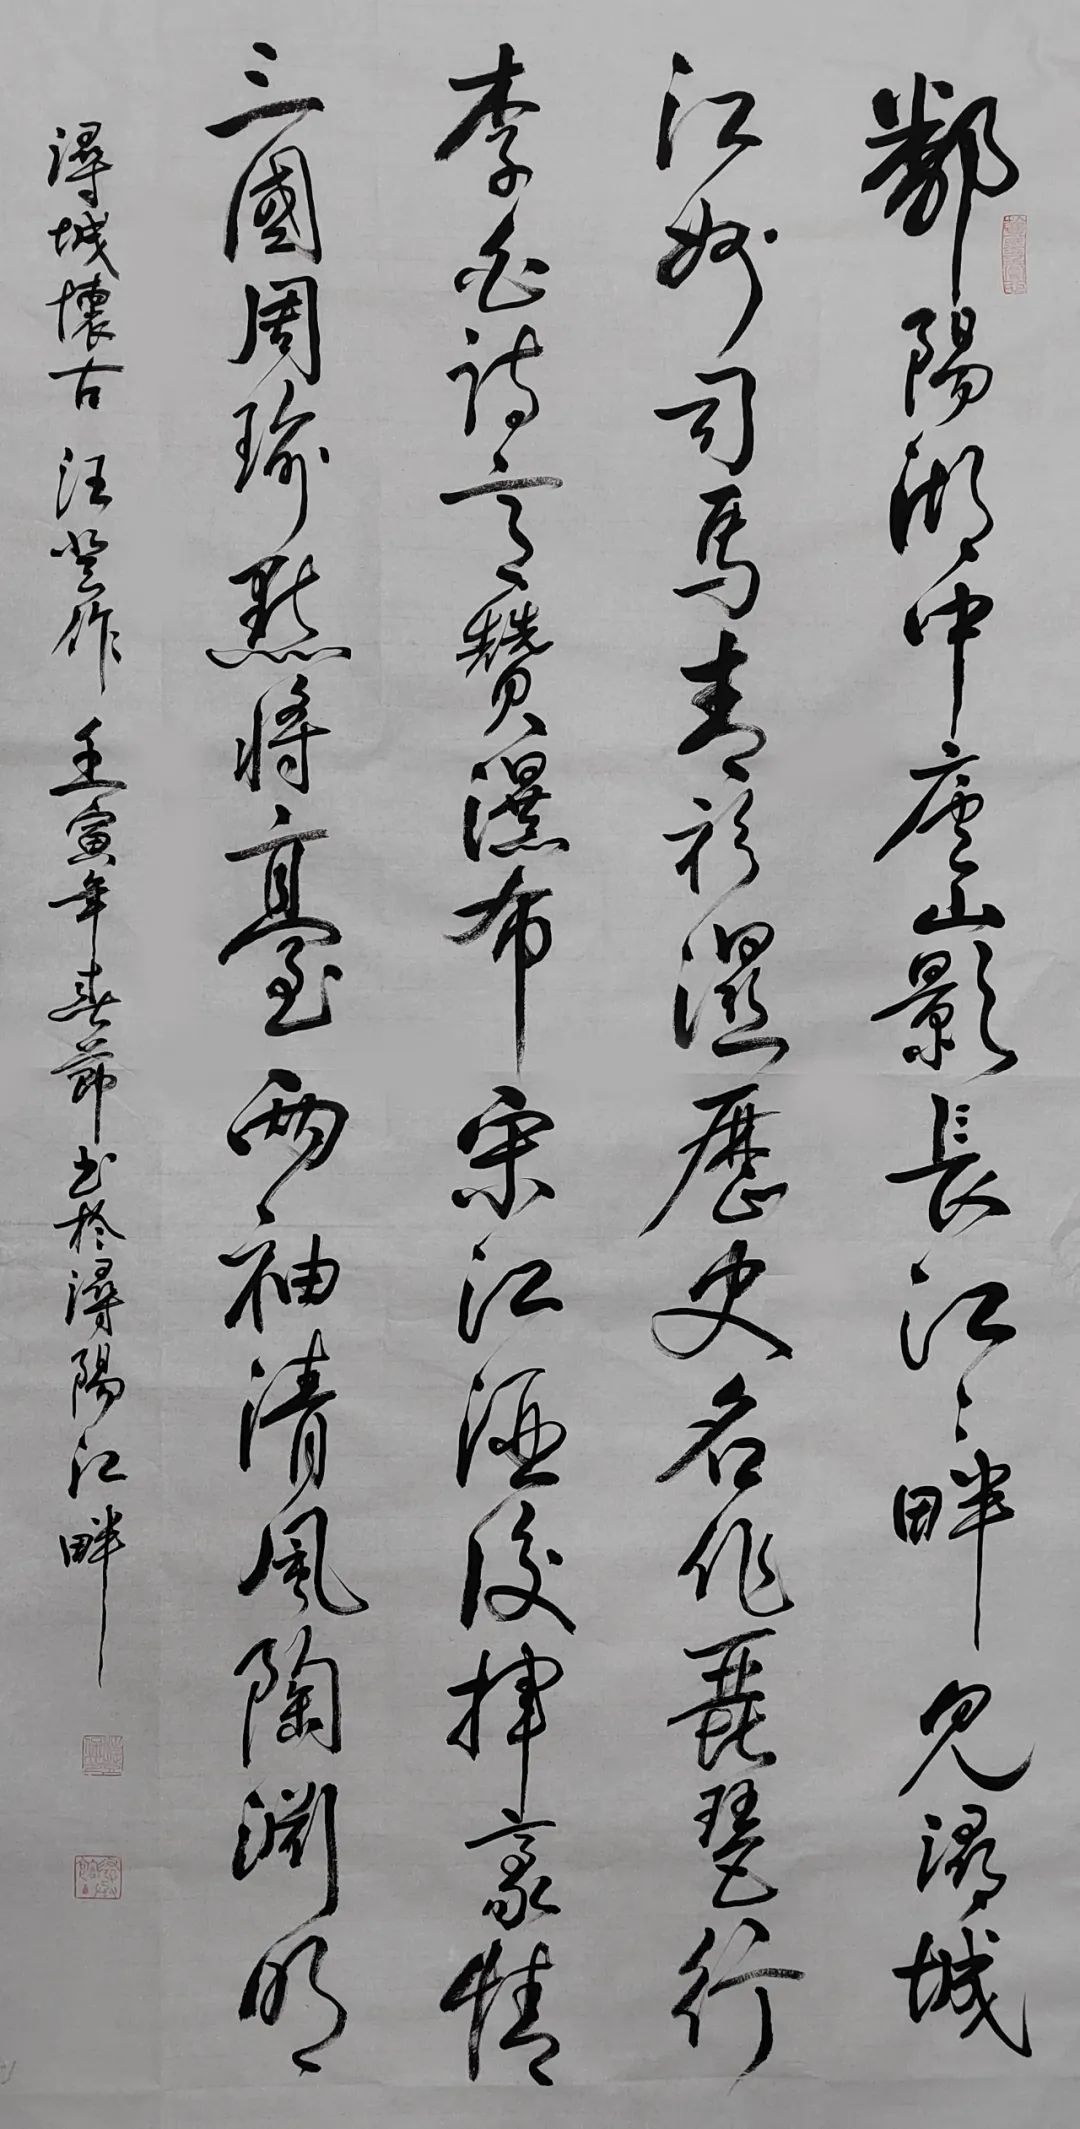 鄱陽湖中廬山影長江之畔見潯城
江州司馬青衫濕歷史名作琵琶行
李白詩意贊瀑布宋江酒後揮豪情
三國周瑜點將臺兩袖清風陶淵明
潯城懷古 汪登作 壬寅年春節書於潯陽江畔